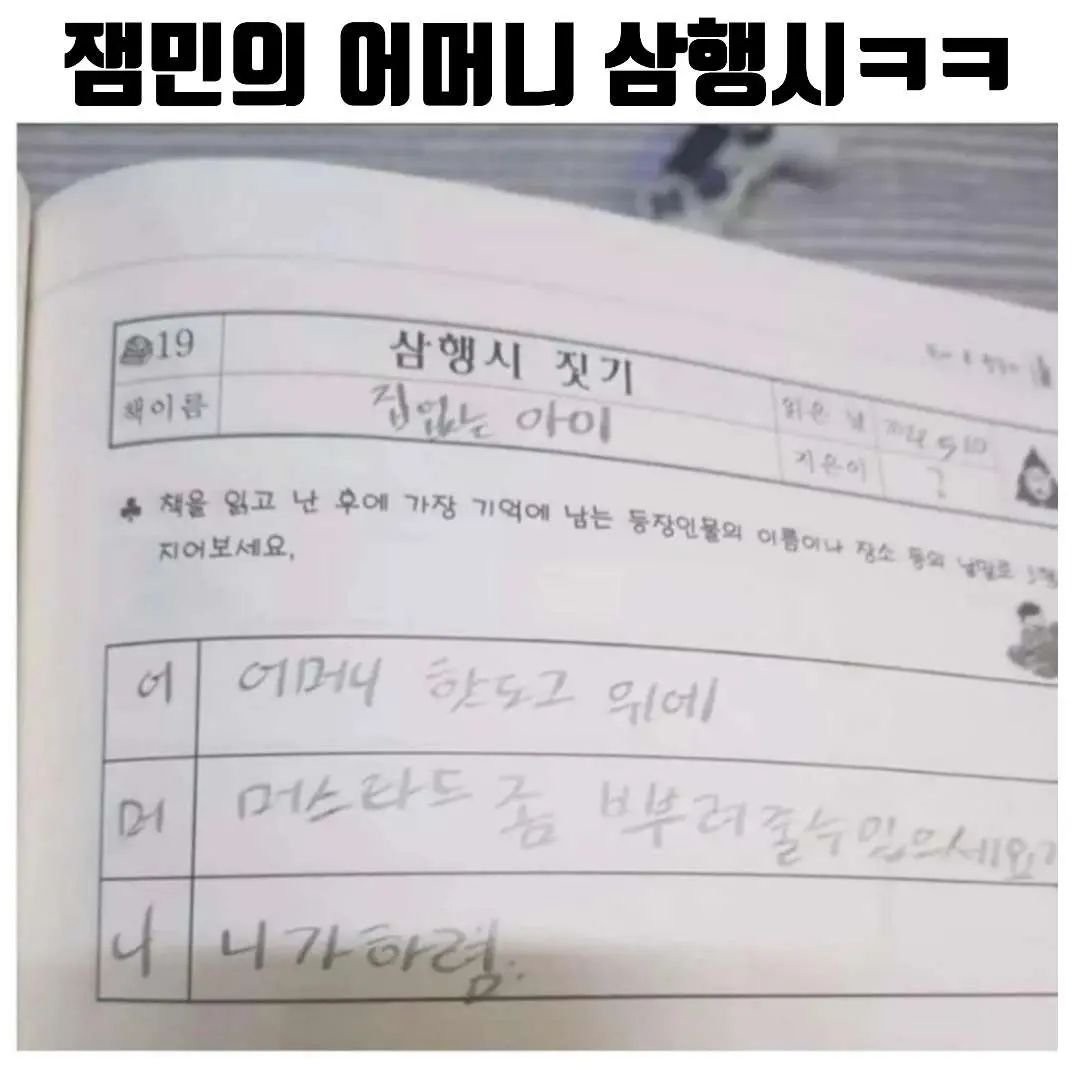 잼민의 어머니 삼행시ㅋㅋ
19 삼행시 짓기
책이름 집없는 아이
읽은 날
지은이 ?
♣ 책을 읽고 난 후에 가장 기억에 남는 등장인물의 이름이나 장소 등의 낱말로 3행
지어보세요.
어 어머니 핫도그 위에
머 머스타드 좀 ㅂ부려줄수있으세요?
니 니가하렴.